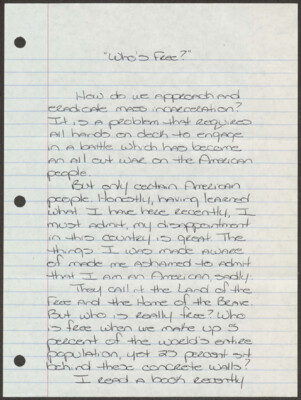 "Who's Free?"
How do we approach and
eradicate mass incarceration?
It is a problem that requires
all hands on deck to engage
in a battle which has become
an all out war on the American
people.
But only certain American
people. Honestly, having learned
what I have here recently, I
must admit, my disappointment
in this country is great. The
things I was made aware
of made me ashamed to admit
that I am an American, sadly.
They call it the Land of the
Free and the Home of the Brave.
But who is really free? Who
is free when we make up 5
percent of the world's entire
population, yet 25 percent sit
behind these concrete walls?
I read a book recently